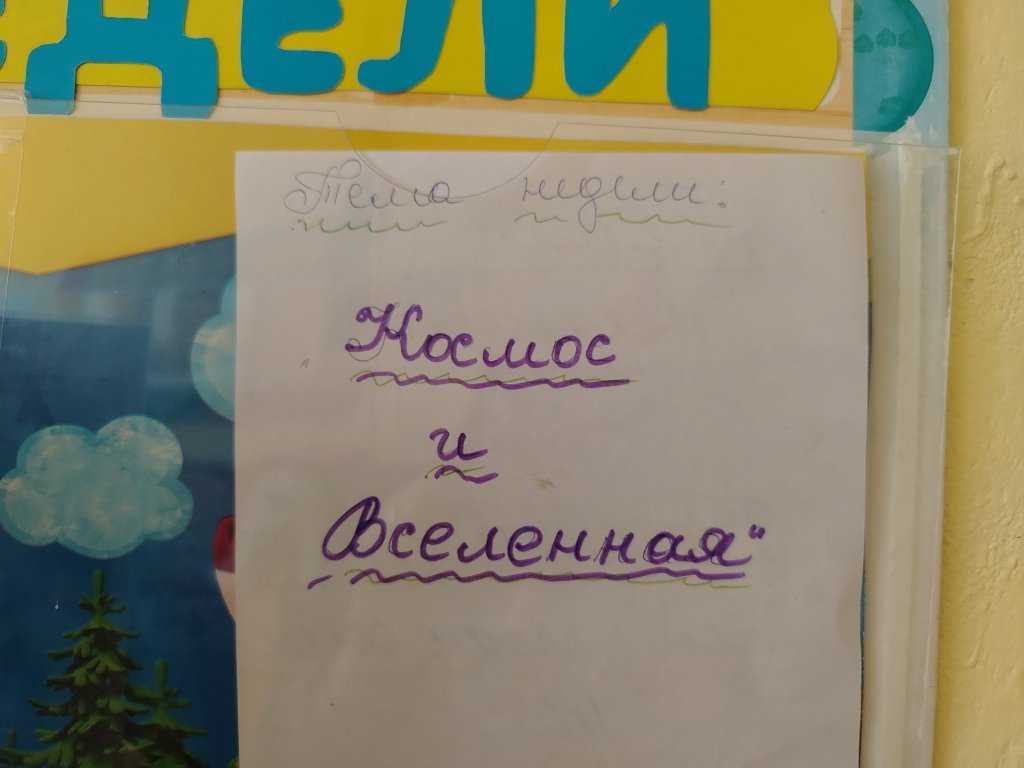 ЕДЕЛИ
Тема недели:
Космос
и
Вселенная"